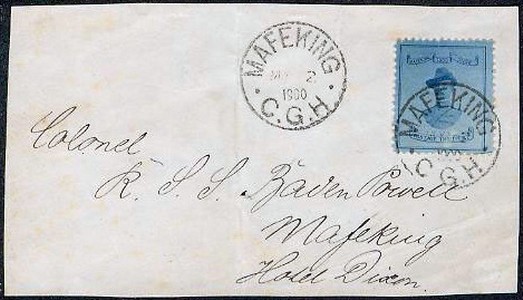 MAFEKING
2
1900
C.G.H.
MAFEKING
C.G.H
Colonel
R S S Baden Powell
Mafeking
Hotel Dixon.